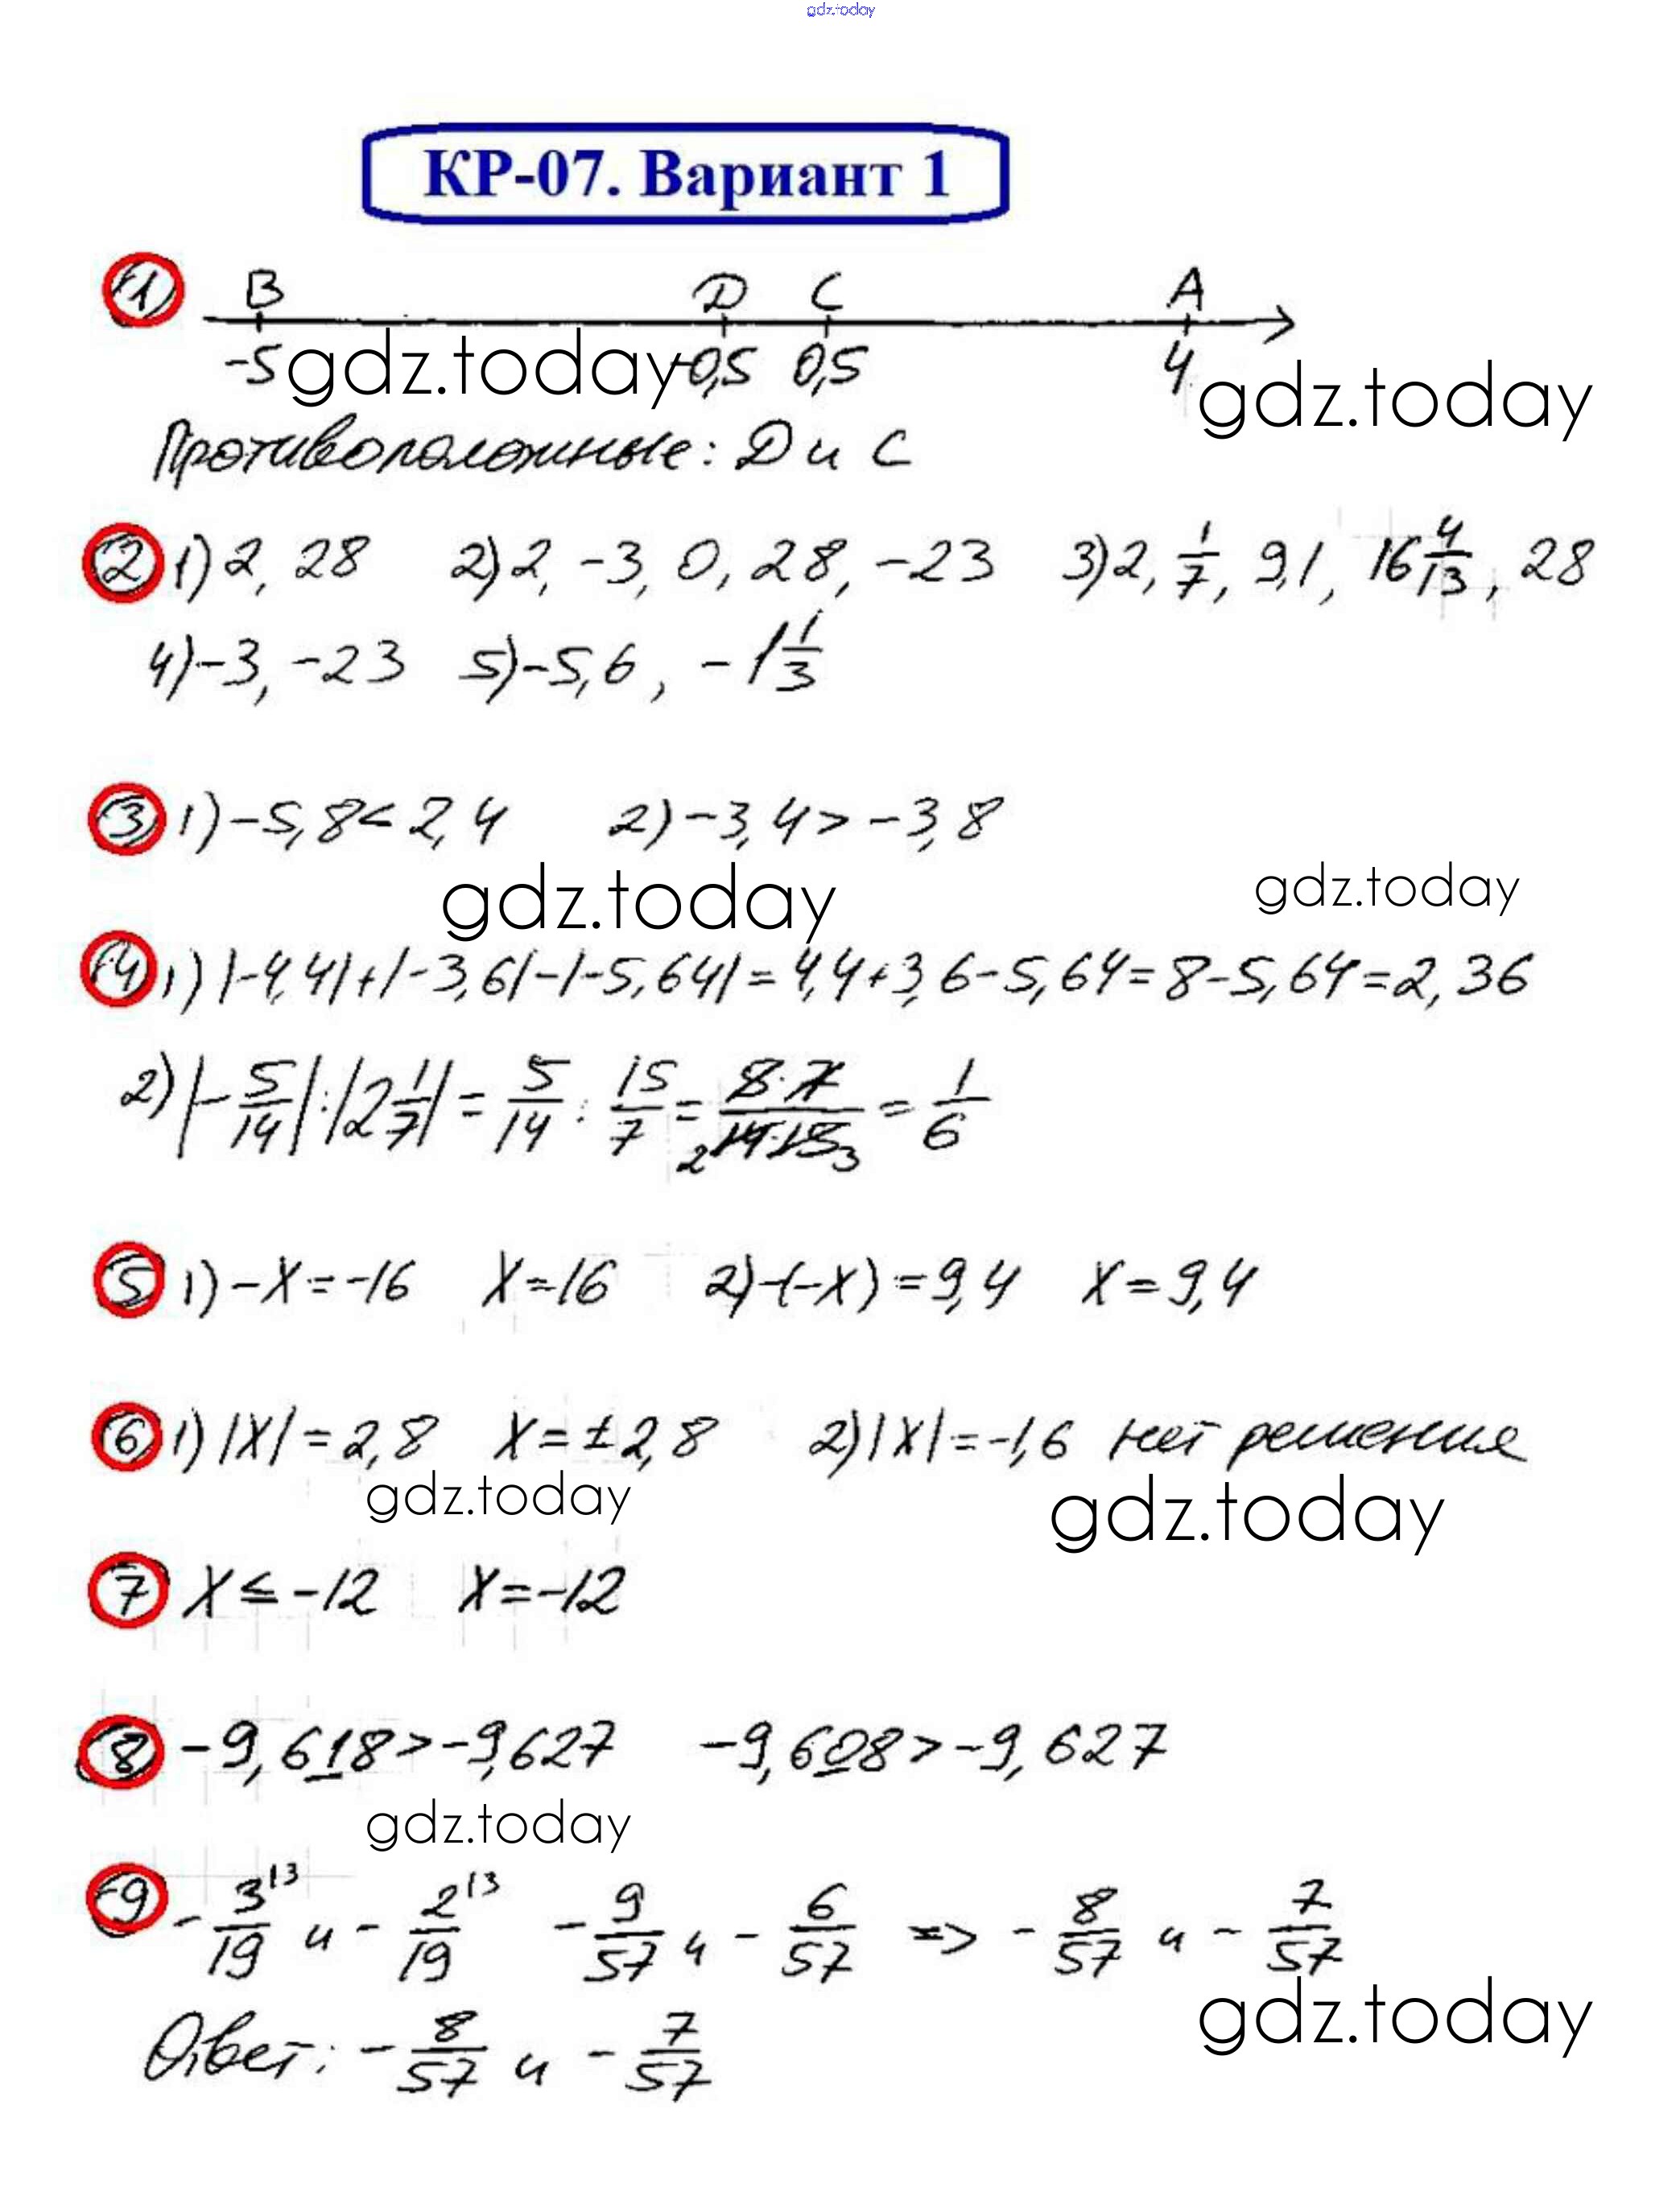 gdz.today
КР-07. Вариант 1
1) B D C A
-5 -0,5 0,5 4
gdz.today gdz.today
Противоположные: D и C
2) 1) 2, 28 2) 2, -3, 0, 28, -23 3) 2, 1/7, 9,1, 16 4/13, 28
4) -3, -23 5) -5,6, -1 1/3
3) 1) -5,8 < 2,4 2) -3,4 > -3,8
gdz.today gdz.today
4) 1) |-4,4|+|-3,6|-|-5,64| = 4,4+3,6-5,64 = 8-5,64 = 2,36
2) |-5/14| : |2 1/7| = 5/14 : 15/7 = 8·7/14·15 2 3 = 1/6
5) 1) -x = -16 x = 16 2) -(-x) = 9,4 x = 9,4
6) 1) |x| = 2,8 x = ±2,8 2) |x| = -1,6 нет решения
gdz.today gdz.today
7 x ≤ -12 x = -12
8) -9,618 > -9,627 -9,608 > -9,627
gdz.today
9) -3/19 ¹³ и -2/19 ¹³ -9/57 и -6/57 => -8/57 и -7/57
gdz.today
Ответ: -8/57 и -7/57